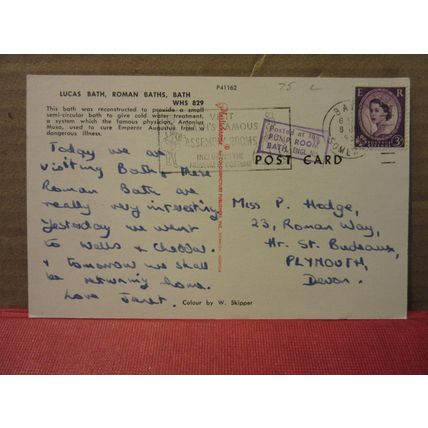 LUCAS BATH, ROMAN BATHS, BATH
WHS 829
This bath was reconstructed to provide a small
semi-circular bath to give cold water treatment,
a system which the famous physician, Antonius
Musa, used to cure Emperor Augustus from a
dangerous illness.
P41162
75
VISIT
FAMOUS
ASSEMBLY ROOMS
INCLUDING THE
MUSEUM OF COSTUME
Posted at the
PUMP ROOM
BATH, ENGLAND
E R
3D
POST CARD
Today we are
visiting Bath & these
Roman Bath are
really very interesting
Yesterday we went
to Wells & Cheddar
& tomorrow we shall
be returning home.
Love Janet.
Miss P. Hodge,
23, Roman Way,
Hr. St. Budeaux,
PLYMOUTH,
Devon.
Colour by W. Skipper